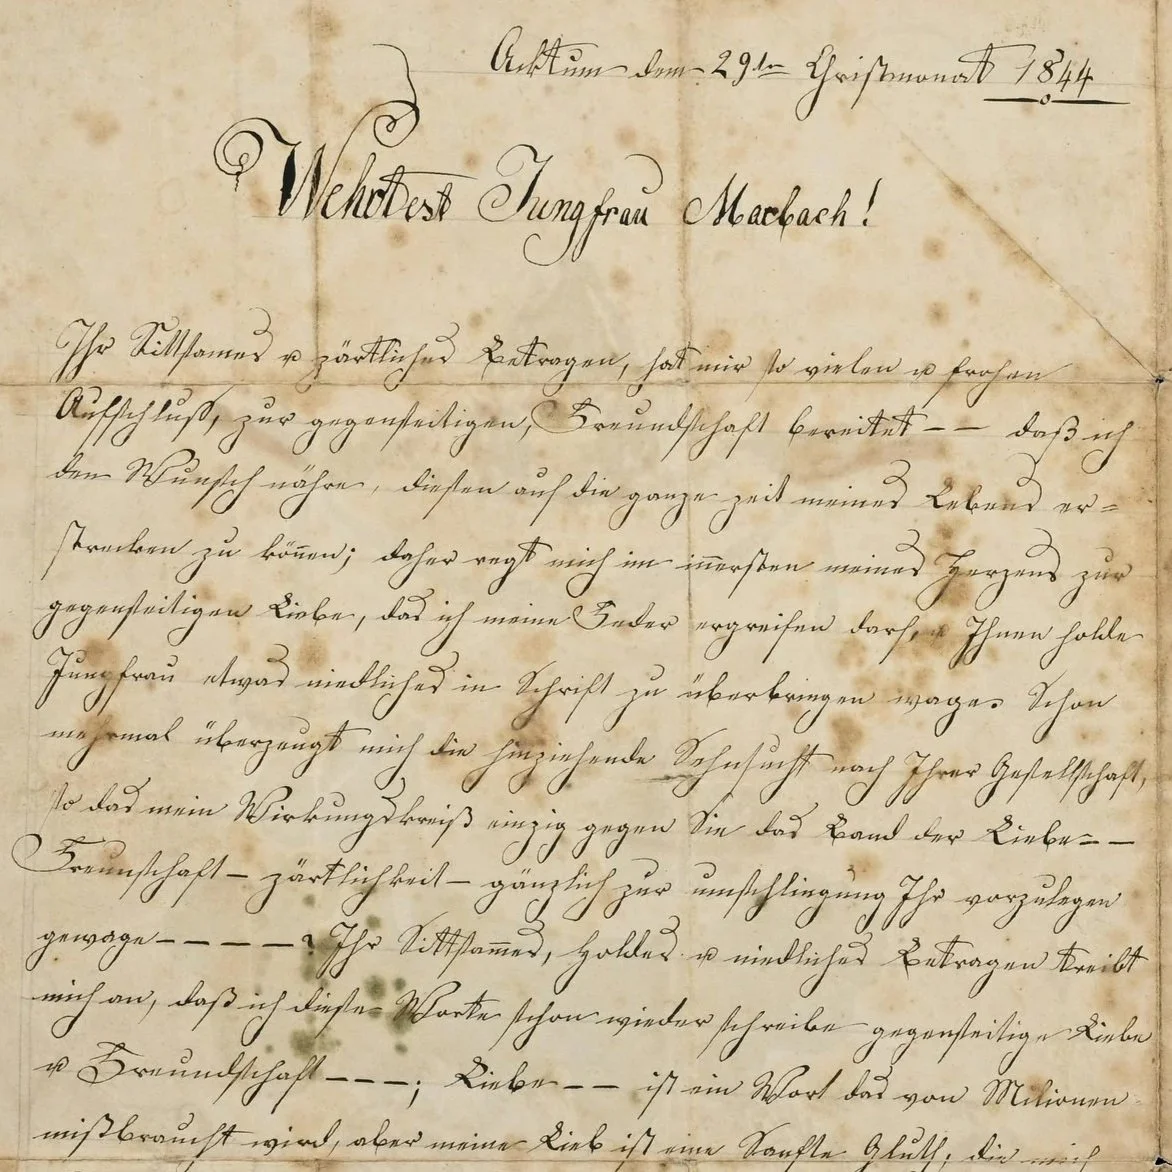 Acktum dem 29ten Christmonat 1844
Wehrtest Jungfrau Marbach!
Ihr Sittsames u zärtliches Betragen, hat mir so vielen u frohen
Aufschluss, zur gegenseitigen, Freundschaft bereitet – – daß ich
den Wunsch nähre, diesen auf die ganze zeit meines Lebens er=
strecken zu können; daher regt mich im innersten meines Herzens zur
gegenseitigen Liebe, das ich meine Feder ergreifen darf, u Ihnen holde
Jungfrau etwas niedliches in Schrift zu überbringen wage. Schon
mehrmal überzeugt mich die hinziehende Sehnsucht nach Ihrer Gesellschaft,
so das mein Wirkungskreiß einzig gegen Sie das Band der Liebe – –
Freunschaft – zärtlichkeit – gänzlich zur umschlingung Ihr vorzulegen
gewage – – – – – ? Ihr Sittsammes, Holdes u niedliches Betragen treibt
mich an, daß ich diese Worte schon wieder schreibe gegenseitige Liebe
u Freundschaft – – – ; Liebe – – ist ein Wort das von Milionen
mißbraucht wird, aber meine Lieb ist eine Sanfte Gluth, die mich